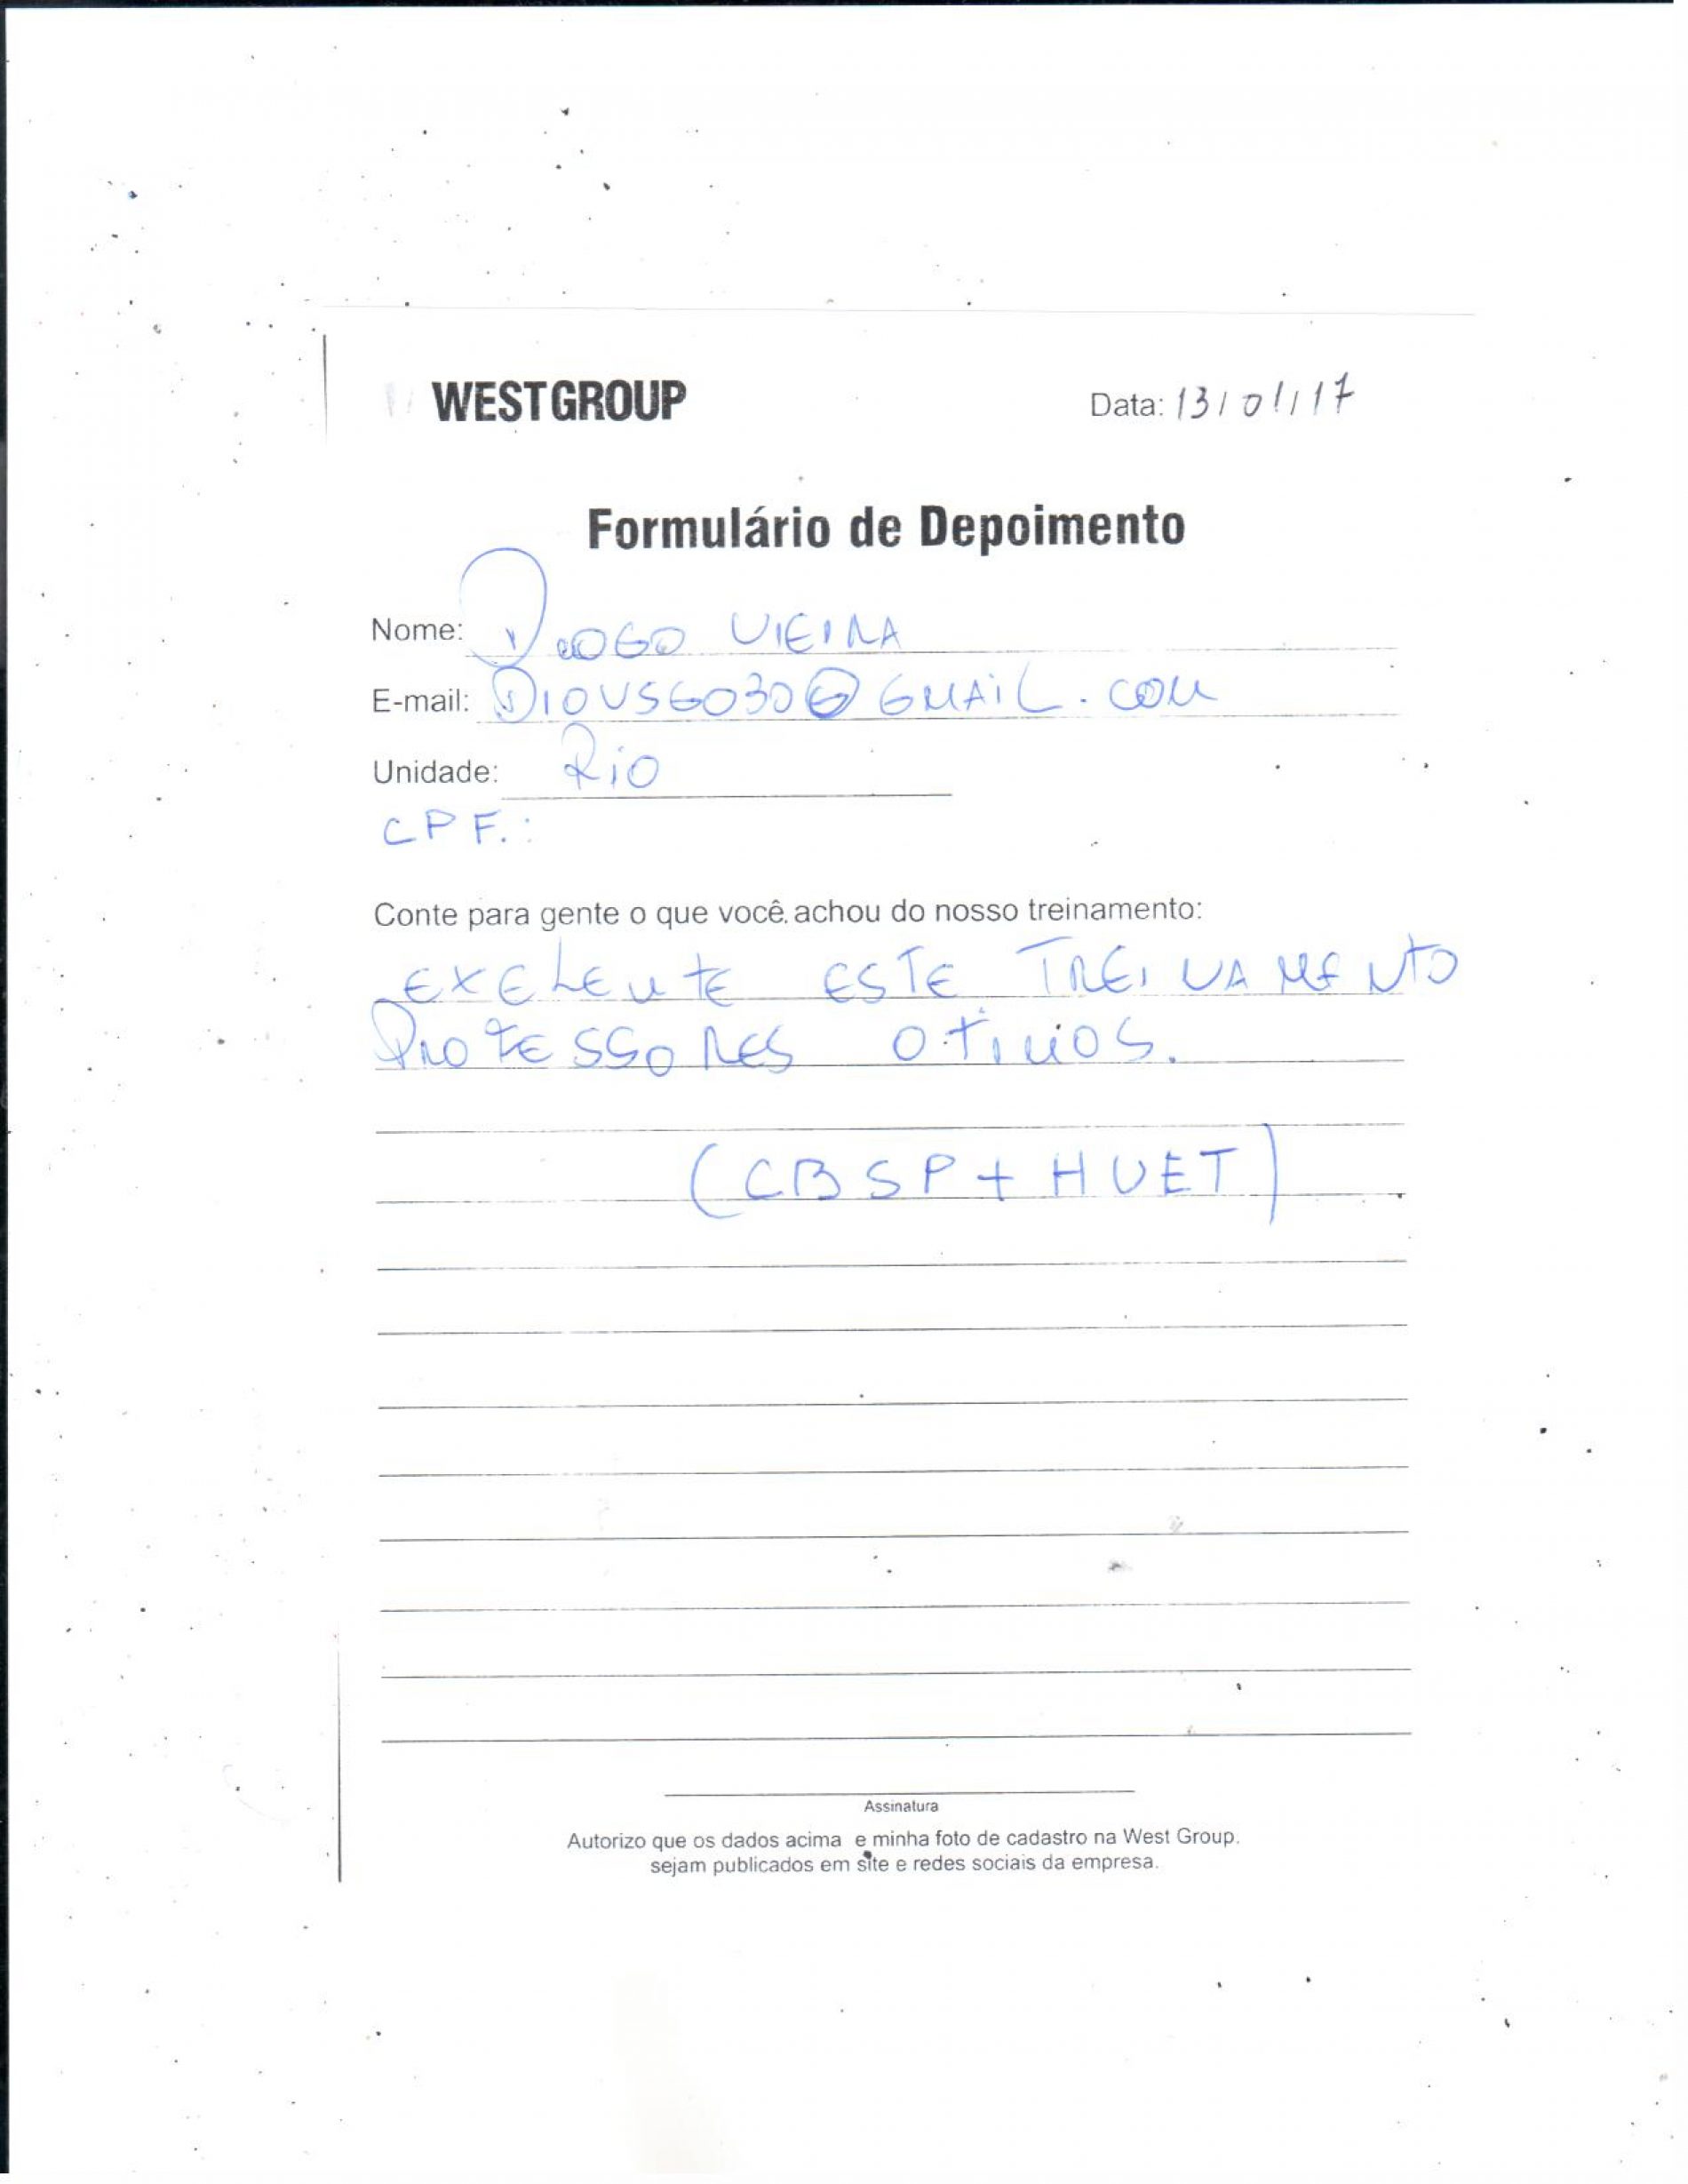 WEST GROUP
Data: 13/01/17
Formulário de Depoimento
Nome: Diogo VIEIRA
E-mail: DIOVSGO30@GMAiL.COM
Unidade: RiO
CPF.:
Conte para gente o que você achou do nosso treinamento:
EXELENTE ESTE TREINAMENTO
PROFESSORES OTIMOS.
(CBSP + HUET)
Assinatura
Autorizo que os dados acima e minha foto de cadastro na West Group.
sejam publicados em site e redes sociais da empresa.